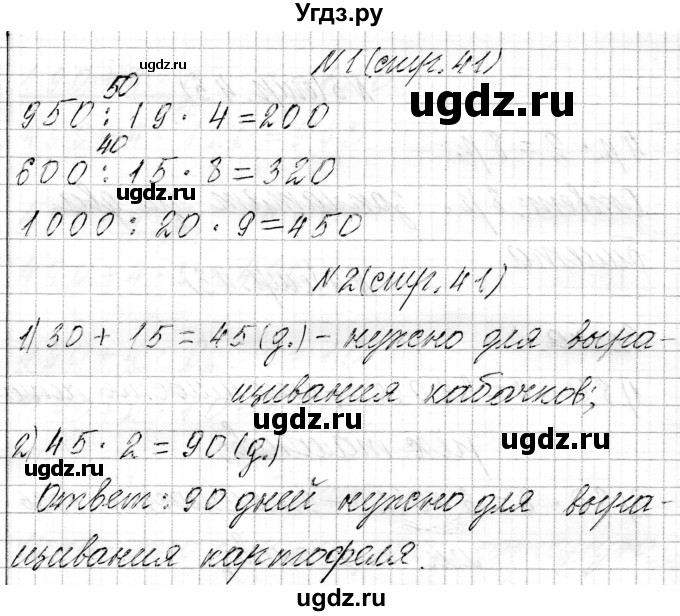 Угдз.ру
N1 (стр. 41)
50
950 : 19 · 4 = 200
40
600 : 15 · 8 = 320
1000 : 20 · 9 = 450
N2 (стр. 41)
1) 30 + 15 = 45 (д.) - нужно для выра-
щивания кабачков;
2) 45 · 2 = 90 (д.)
Ответ: 90 дней нужно для выра-
щивания картофеля.
ugdz.ru
ugdz.ru
ugdz.ru
ugdz.ru
ugdz.ru
ugdz.ru
ugdz.ru
ugdz.ru
ugdz.ru